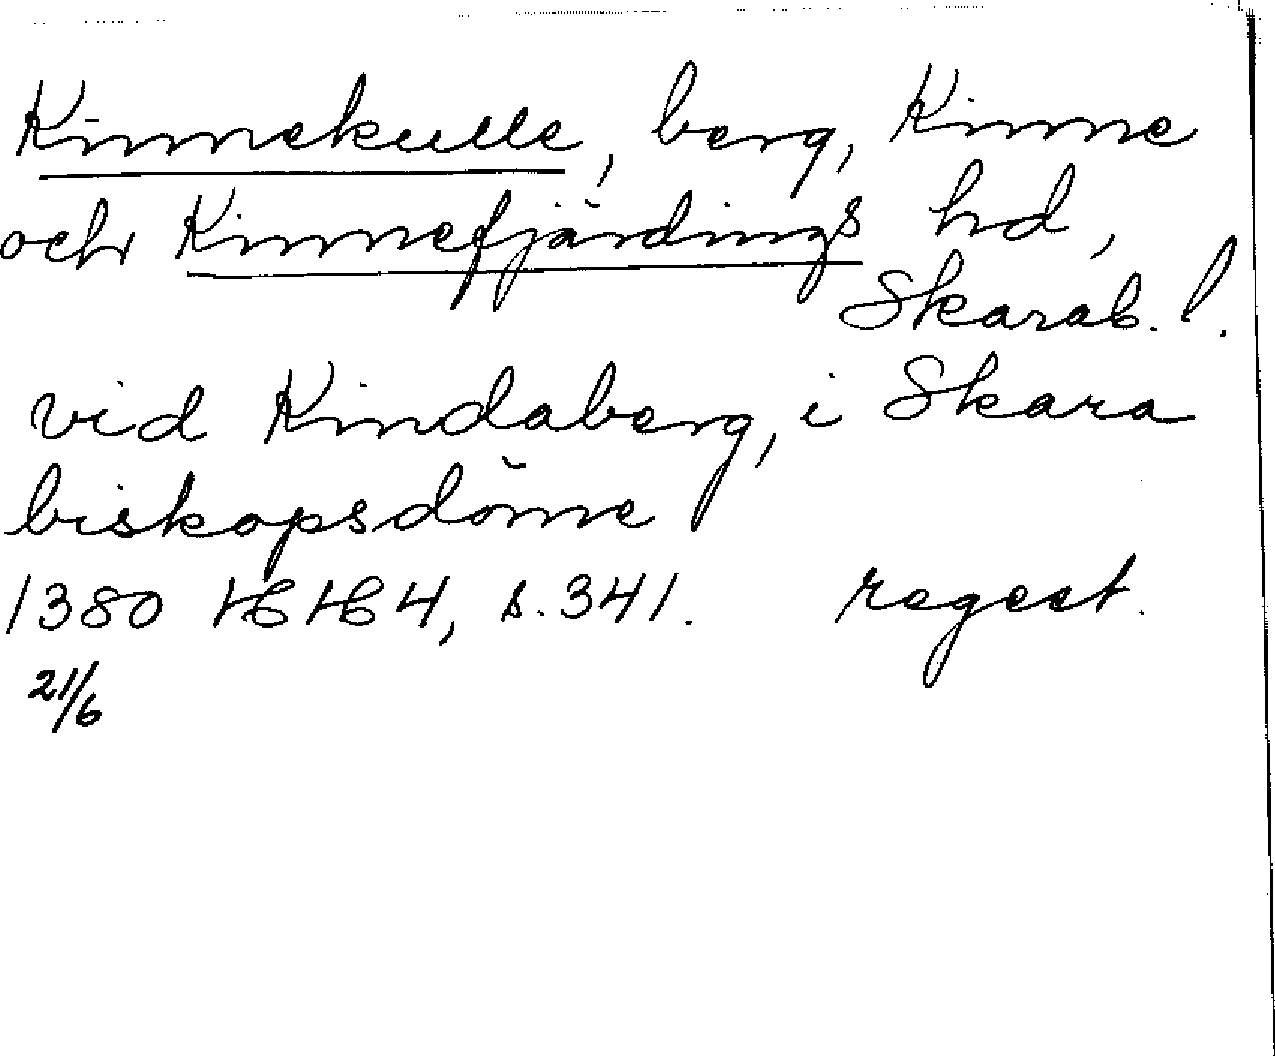 Kinnekulle, berg, Kinne
och Kinnefjärdings hd,
Skarab. l.
vid Kindaberg, i Skara
biskopsdöme
1380 HH 4, s. 341. regest.
21/6